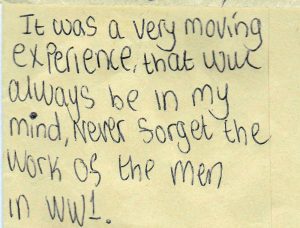 It was a very moving
experience, that will
always be in my
mind, Never forget the
work of the men
in WW1.